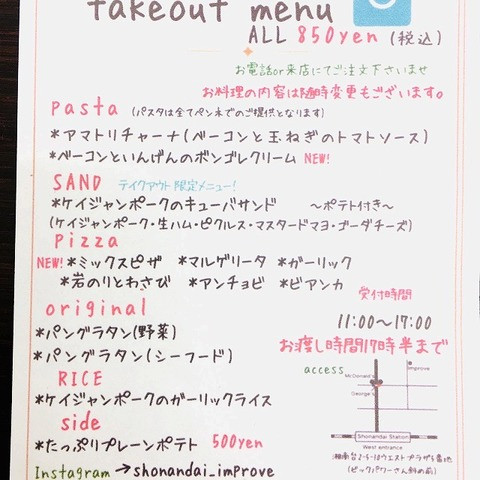 takeout menu
ALL 850yen (税込)
お電話or来店にてご注文下さいませ
お料理の内容は随時変更もございます。
pasta (パスタは全てペンネでのご提供となります)
*アマトリチャーナ(ベーコンと玉ねぎのトマトソース)
*ベーコンといんげんのボンゴレクリーム NEW!
SAND テイクアウト限定メニュー!
*ケイジャンポークのキューバサンド ～ポテト付き～
(ケイジャンポーク・生ハム・ピクルス・マスタードマヨ・ゴーダチーズ)
pizza
NEW! *ミックスピザ *マルゲリータ *ガーリック
*岩のりとわさび *アンチョビ *ビアンカ
受付時間
11:00～17:00
お渡し時間17時半まで
original
*パングラタン(野菜)
*パングラタン(シーフード)
RICE
*ケイジャンポークのガーリックライス
side
*たっぷりプレーンポテト 500yen
Instagram →shonandai_improve
access
improve
McDonald's
George's
Shonandai Station
West entrance
(湘南台2-5-18ウエストプラザ5番地
(ビックパワーさん斜め前)